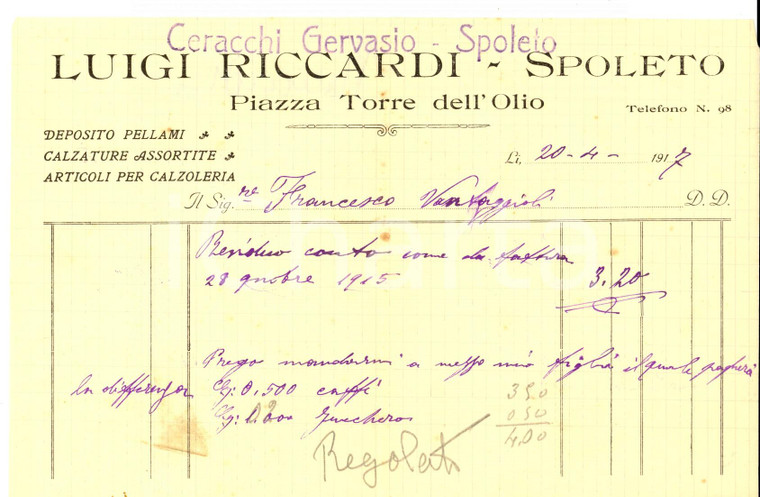 Ceracchi Gervasio - Spoleto
LUIGI RICCARDI - SPOLETO
Piazza Torre dell'Olio
Telefono N. 98
DEPOSITO PELLAMI
CALZATURE ASSORTITE
ARTICOLI PER CALZOLERIA
Lì, 20-4- 1917
Il Sig.re Francesco Vantaggioli D. D.
Residuo conto come da fattura
28 gnobre 1915 3.20
Prego mandarmi a mezzo mio figlia il quale pagherà
la differenza
Cg: 0,500 caffè
Cg: Zucchero
350
050
4,00
Regolato